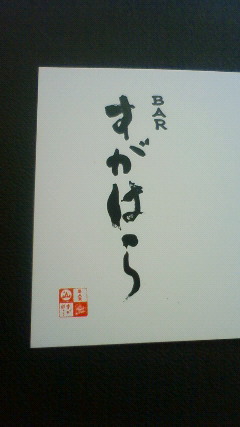 BAR
すがはら